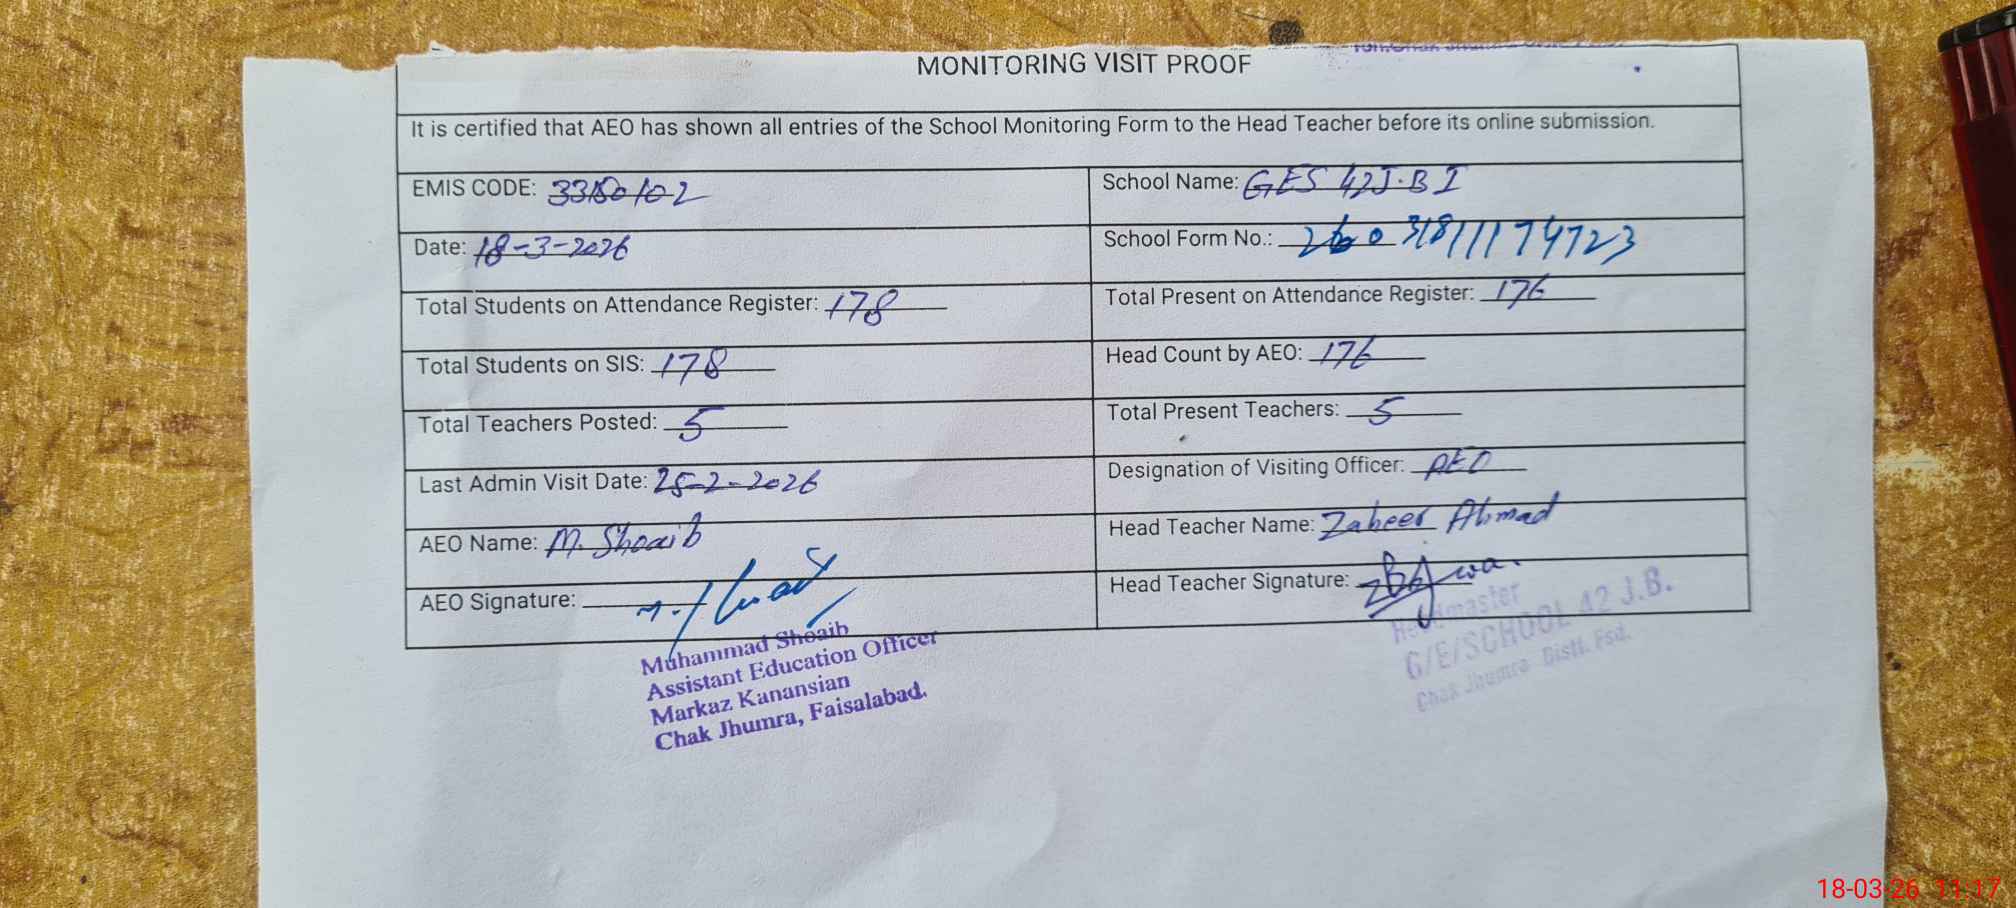 MONITORING VISIT PROOF
It is certified that AEO has shown all entries of the School Monitoring Form to the Head Teacher before its online submission.
EMIS CODE: 33180102
School Name: GES 42J.B I
Date: 18-3-2026
School Form No.: 260318111174723
Total Students on Attendance Register: 178
Total Present on Attendance Register: 176
Total Students on SIS: 178
Head Count by AEO: 176
Total Teachers Posted: 5
Total Present Teachers: 5
Last Admin Visit Date: 25-2-2026
Designation of Visiting Officer: AEO
AEO Name: M. Shoaib
Head Teacher Name: Zaheer Ahmad
AEO Signature:
Head Teacher Signature:
Muhammad Shoaib
Assistant Education Officer
Markaz Kanansian
Chak Jhumra, Faisalabad.
Headmaster
G/E/SCHOOL 42 J.B.
Chak Jhumra Distt. Fsd.
18-03-26 11:17